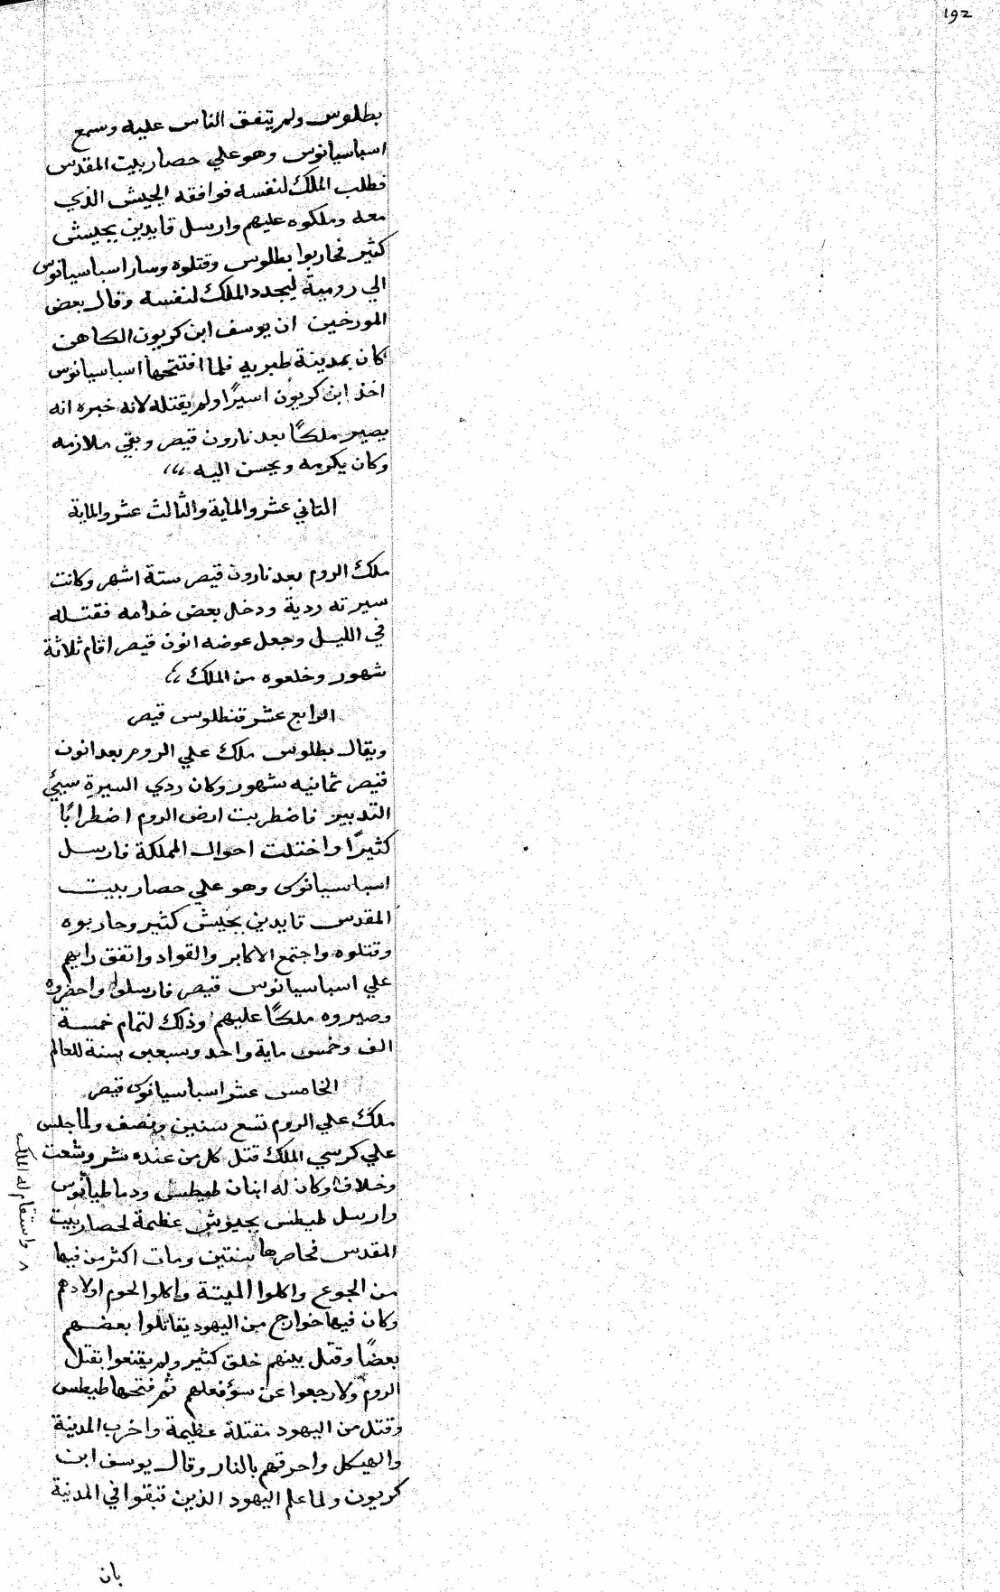 ١٩٢
بطلوس ولم يتفق الناس عليه وسمع
اسباسيانوس وهو علي حصار بيت المقدس
فطلب الملك لنفسه فوافقه الجيش الذي
معه وملكوه عليهم وارسل قايدين بجيش
كثير فحاربوا بطلوس وقتلوه وسار اسباسيانوس
الي رومية ليجدد الملك لنفسه وقال بعض
المورخين ان يوسف ابن كريون الكاهن
كان بمدينة طبريه فلما افتتحها اسباسيانوس
اخذ ابن كريون اسيرًا ولم يقتله لانه خبره انه
يصير ملكًا بعد نارون قيصر وبقي ملازمه
وكان يكرمه ويحسن اليه
الثاني عشر والماية والثالث عشر والماية
ملك الروم بعد نارون قيصر ستة اشهر وكانت
سيرته ردية ودخل بعض خدامه فقتله
في الليل وجعل عوضه انون قيصر اقام ثلاثة
شهور وخلعوه من الملك
الرابع عشر قنطلوس قيصر
ويقال بطلوس ملك علي الروم بعد انون
قيصر ثمانيه شهور وكان ردي السيرة سيئ
التدبير فاضطربت ارض الروم اضطرابًا
كثيرًا واختلت احوال المملكة فارسل
اسباسيانوس وهو علي حصار بيت
المقدس قايدين بجيش كثير وحاربوه
وقتلوه واجتمع الاكابر والقواد واتفق رايهم
علي اسباسيانوس قيصر فارسلوا واحضروه
وصيروه ملكًا عليهم وذلك لتمام خمسة
الف وخمس ماية واحد وسبعين سنة للعالم
الخامس عشر اسباسيانوس قيصر
ملك علي الروم تسع سنين ونصف ولما جلس
علي كرسي الملك قتل كل من عنده شر وشعت
وخلاف وكان له ابنان طيطس ودماطيانوس
٨ واستقام له الملك
وارسل طيطس بجيوش عظيمة لحصار بيت
المقدس فحاصرها سنتين ومات اكثر من فيها
من الجوع واكلوا الميتة واكلوا لحوم اولادهم
وكان فيها خوارج من اليهود يقاتلوا بعضهم
بعضًا وقتل بينهم خلق كثير ولم يقنعوا بقتل
الروم ولا رجعوا عن سؤ فعلهم ثم فتحها طيطس
وقتل من اليهود مقتلة عظيمة واخرب المدنية
والهيكل واحرقهم بالنار وقال يوسف ابن
كريون ولما علم اليهود الذين تبقوا في المدنية
بان